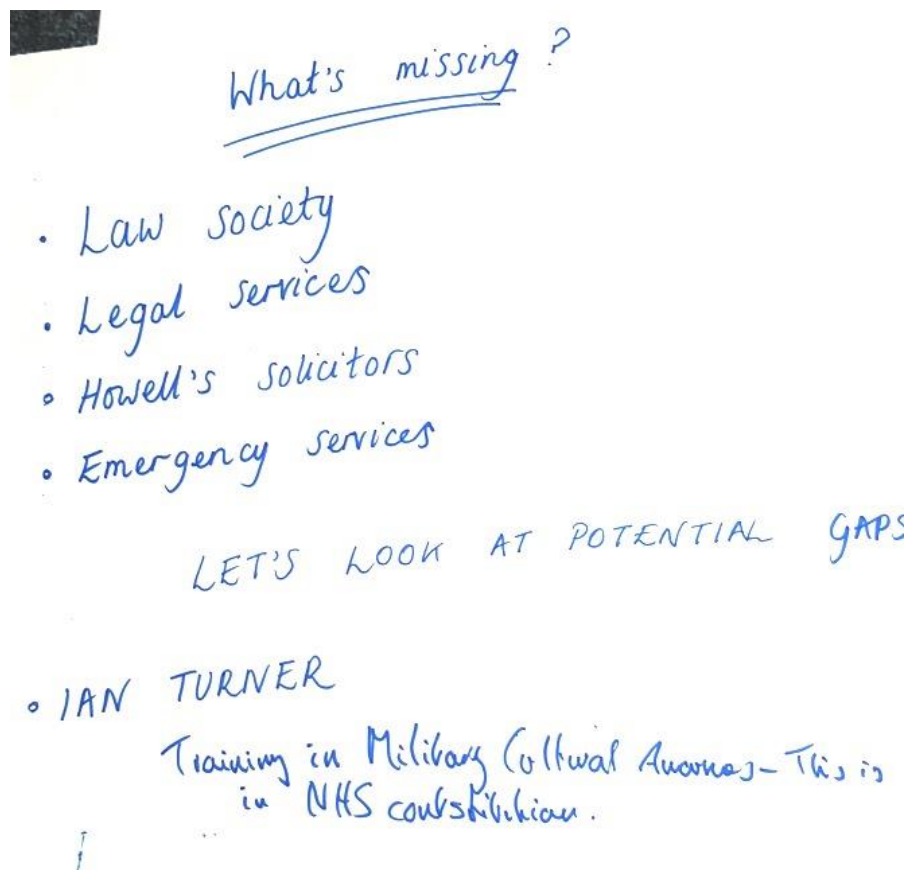 What's missing ?
• Law society
• Legal services
• Howell's solicitors
• Emergency services
LET'S LOOK AT POTENTIAL GAPS
• IAN TURNER
Training in Military Cultural Awarnes - This is
in NHS constitution.